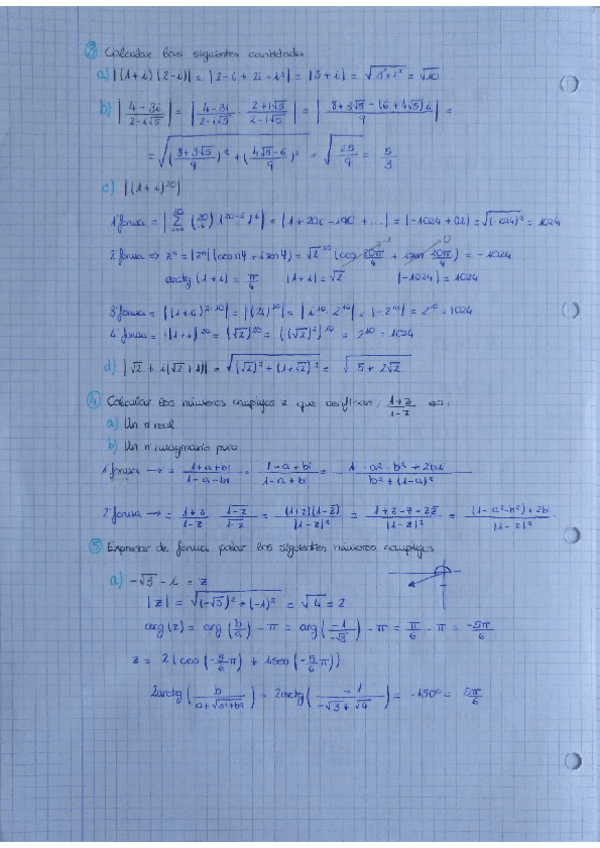 3 Calcular las siguientes cantidades
a) |(1+i)(2-i)| = |2-i+2i-i²| = |3+i| = √(3²+1²) = √10
b) |(4-3i)/(2-i√5)| = |(4-3i)/(2-i√5) · (2+i√5)/(2-i√5)| = |(8+3√5-(6+4√5)i)/9| =
= √(((8+3√5)/9)² + ((4√5-6)/9)²) = √(25/9) = 5/3
c) |(1+i)²⁰|
1ª forma = |Σ (20 i) 1^(20-i) i^i| = |1+20i-190+...| = |-1024+0i| = √(-1024)² = 1024
2ª forma ⇒ zⁿ = |zⁿ|(cos nφ + i sen nφ) = √2²⁰(cos 20π/4 + i sen 20π/4) = -1024
arctg (1+i) = π/4 |1+i| = √2 |-1024| = 1024
3ª forma = |(1+i)^(2·10)| = |(2i)¹⁰| = |i¹⁰·2¹⁰| = |-2¹⁰| = 2¹⁰ = 1024
4ª forma = |1+i|²⁰ = (√2)²⁰ = ((√2)²)¹⁰ = 2¹⁰ = 1024
d) |√2+i(√2+1)| = √((√2)²+(1+√2)²) = √(5+2√2)
4 Calcular los números complejos z que verifican, (1+z)/(1-z) es:
a) Un nº real
b) Un nº imaginario puro
1ª forma → = (1+a+bi)/(1-a-bi) · (1-a+bi)/(1-a+bi) = (1-a²-b²+2bi)/(b²+(1-a)²)
2ª forma → = (1+z)/(1-z) · (1-z̄)/(1-z̄) = ((1+z)(1-z̄))/|1-z|² = (1+z-z̄-zz̄)/|1-z|² = ((1-a²-b²)+2bi)/|1-z|²
5 Expresar de forma polar los siguientes números complejos
a) -√3-i = z
|z| = √((-√3)²+(-1)²) = √4 = 2
arg(z) = arg(b/a) - π = arg(-1/-√3) - π = π/6 - π = -5π/6
z = 2(cos(-5/6 π) + i sen(-5/6 π))
2arctg(b/(a+√(a²+b²))) = 2arctg(-1/(-√3+√4)) = -150° = 5π/6